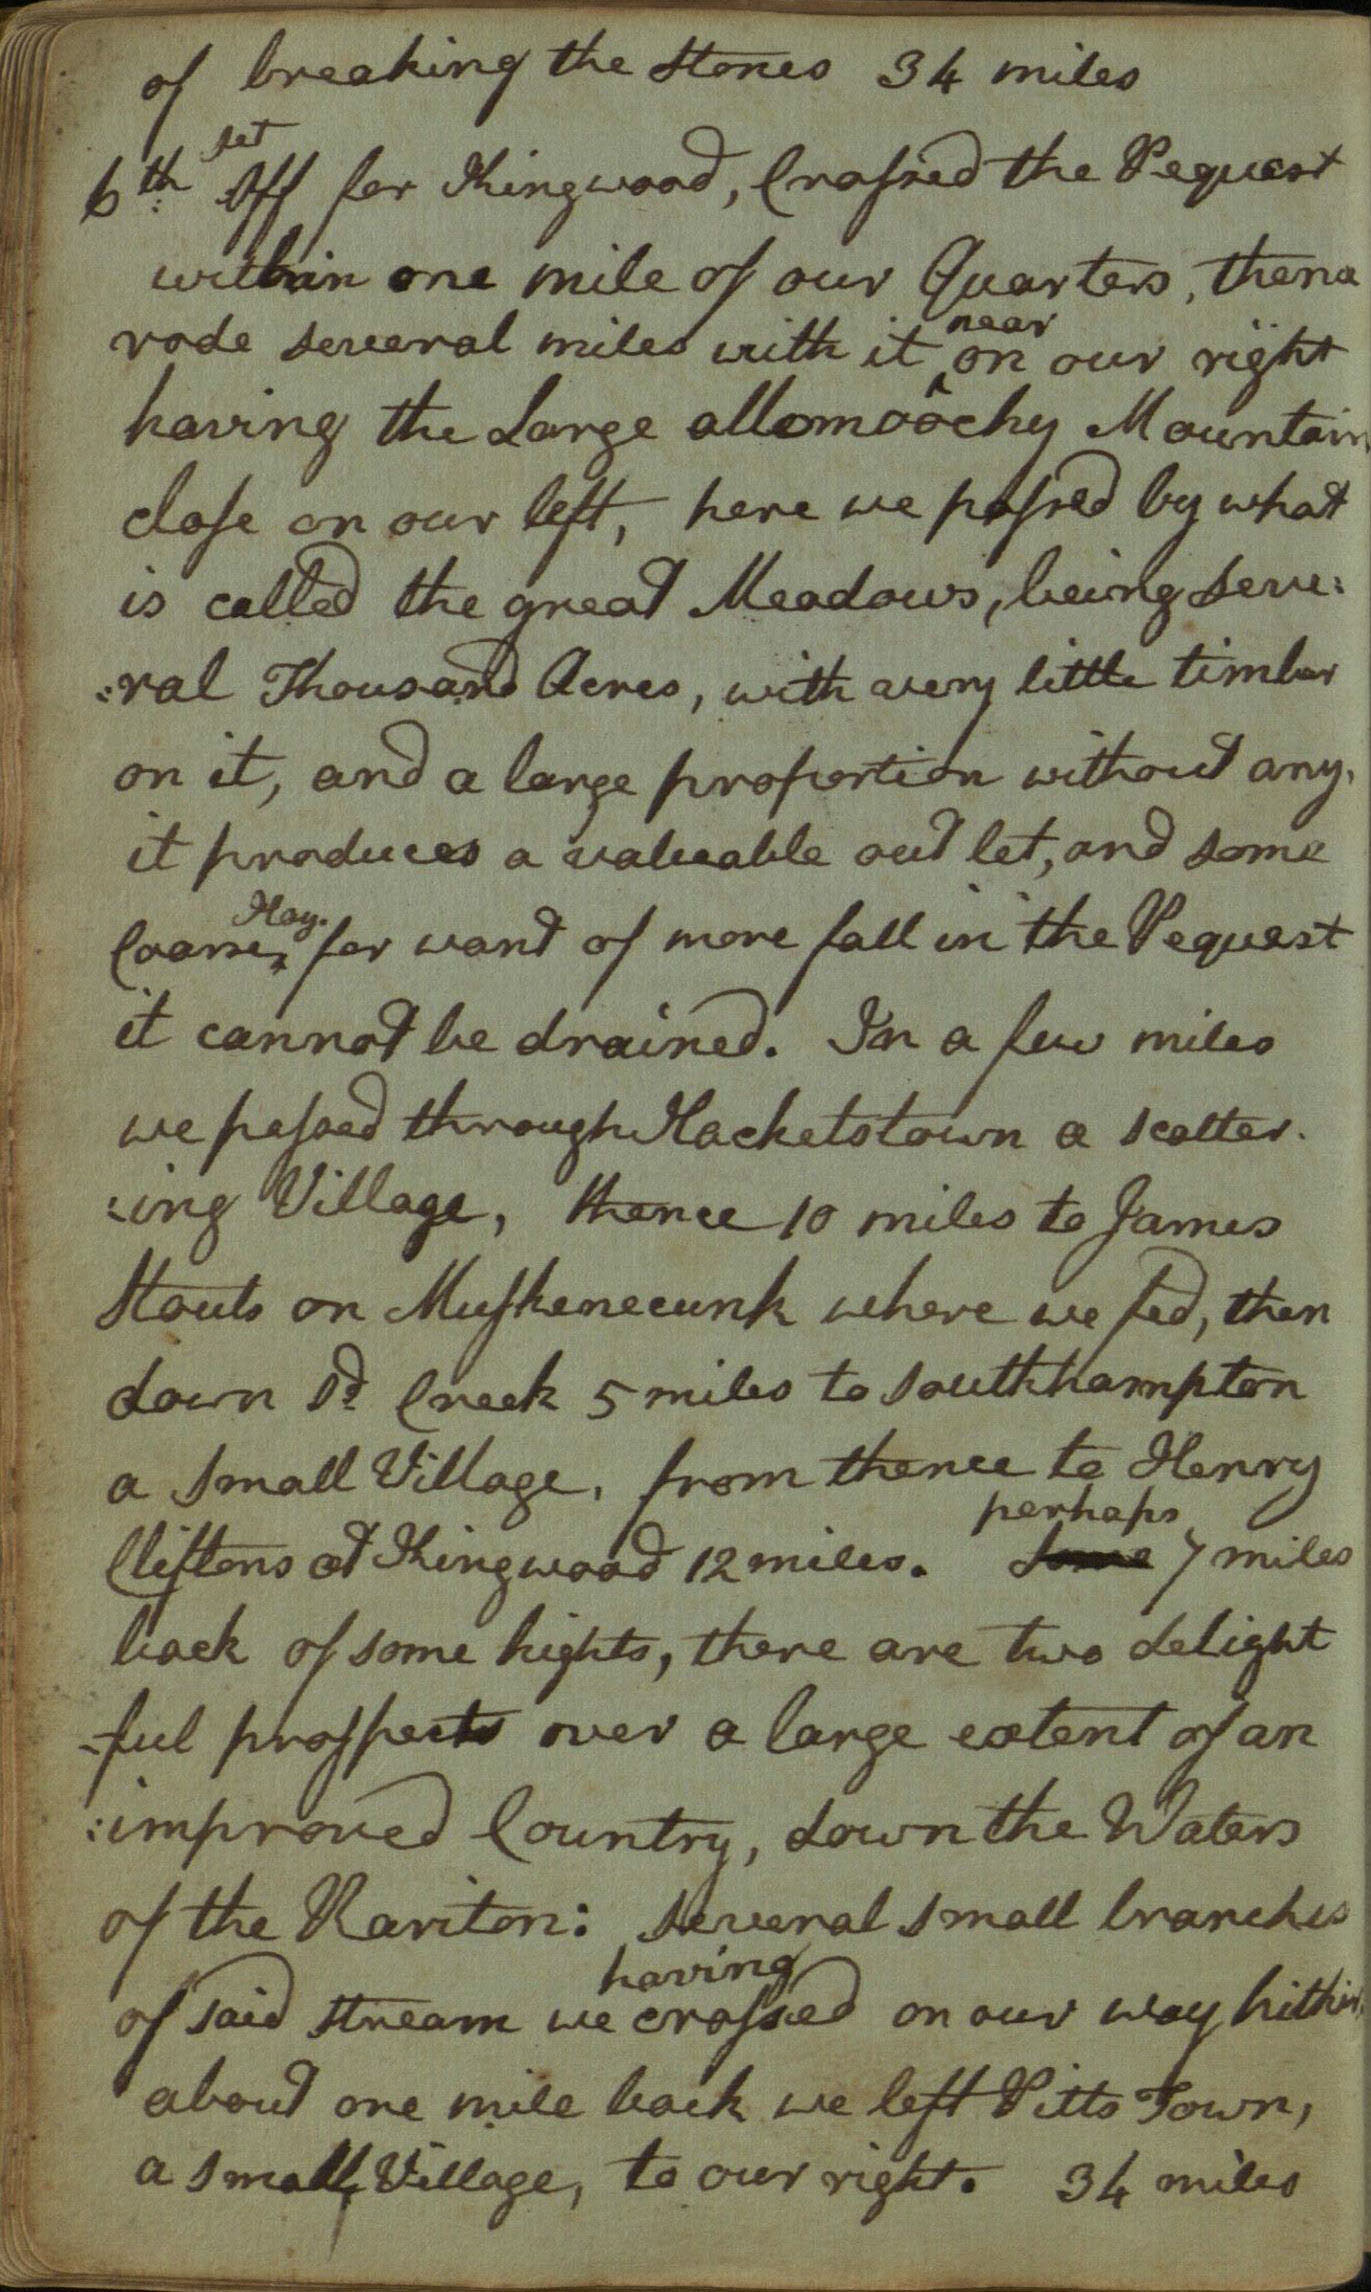 of breaking the stones 34 miles
set
6th: Off for Kingwood, Crossed the Pequest
within one mile of our Quarters, thence
near
rode several miles with it on our right
having the Large allomoochy Mountain
close on our left, here we passed by what
is called the great Meadows, being seve:
:ral Thousand Acres, with avery little timber
on it, and a large proportion without any.
it produces a valuable out let, and some
Hay.
Coarse, for want of more fall in the Pequest
it cannot be drained. In a few miles
we passed through Hacketstown a scatter.
:ing Village, thence 10 miles to James
Stouts on Muskenecunk where we fed, then
down sd. Creek 5 miles to Southhampton
a small Village, from thence to Henry
perhaps
Cliftons at Kingwood 12 miles. some 7 miles
back of some hights, there are two delight
-ful prospects over a large extent of an
:improved Country, down the Waters
of the Rariton: several small branches
having
of said stream we crossed on our way hither,
about one mile back we left Pitts Town,
a small Village, to our right. 34 miles